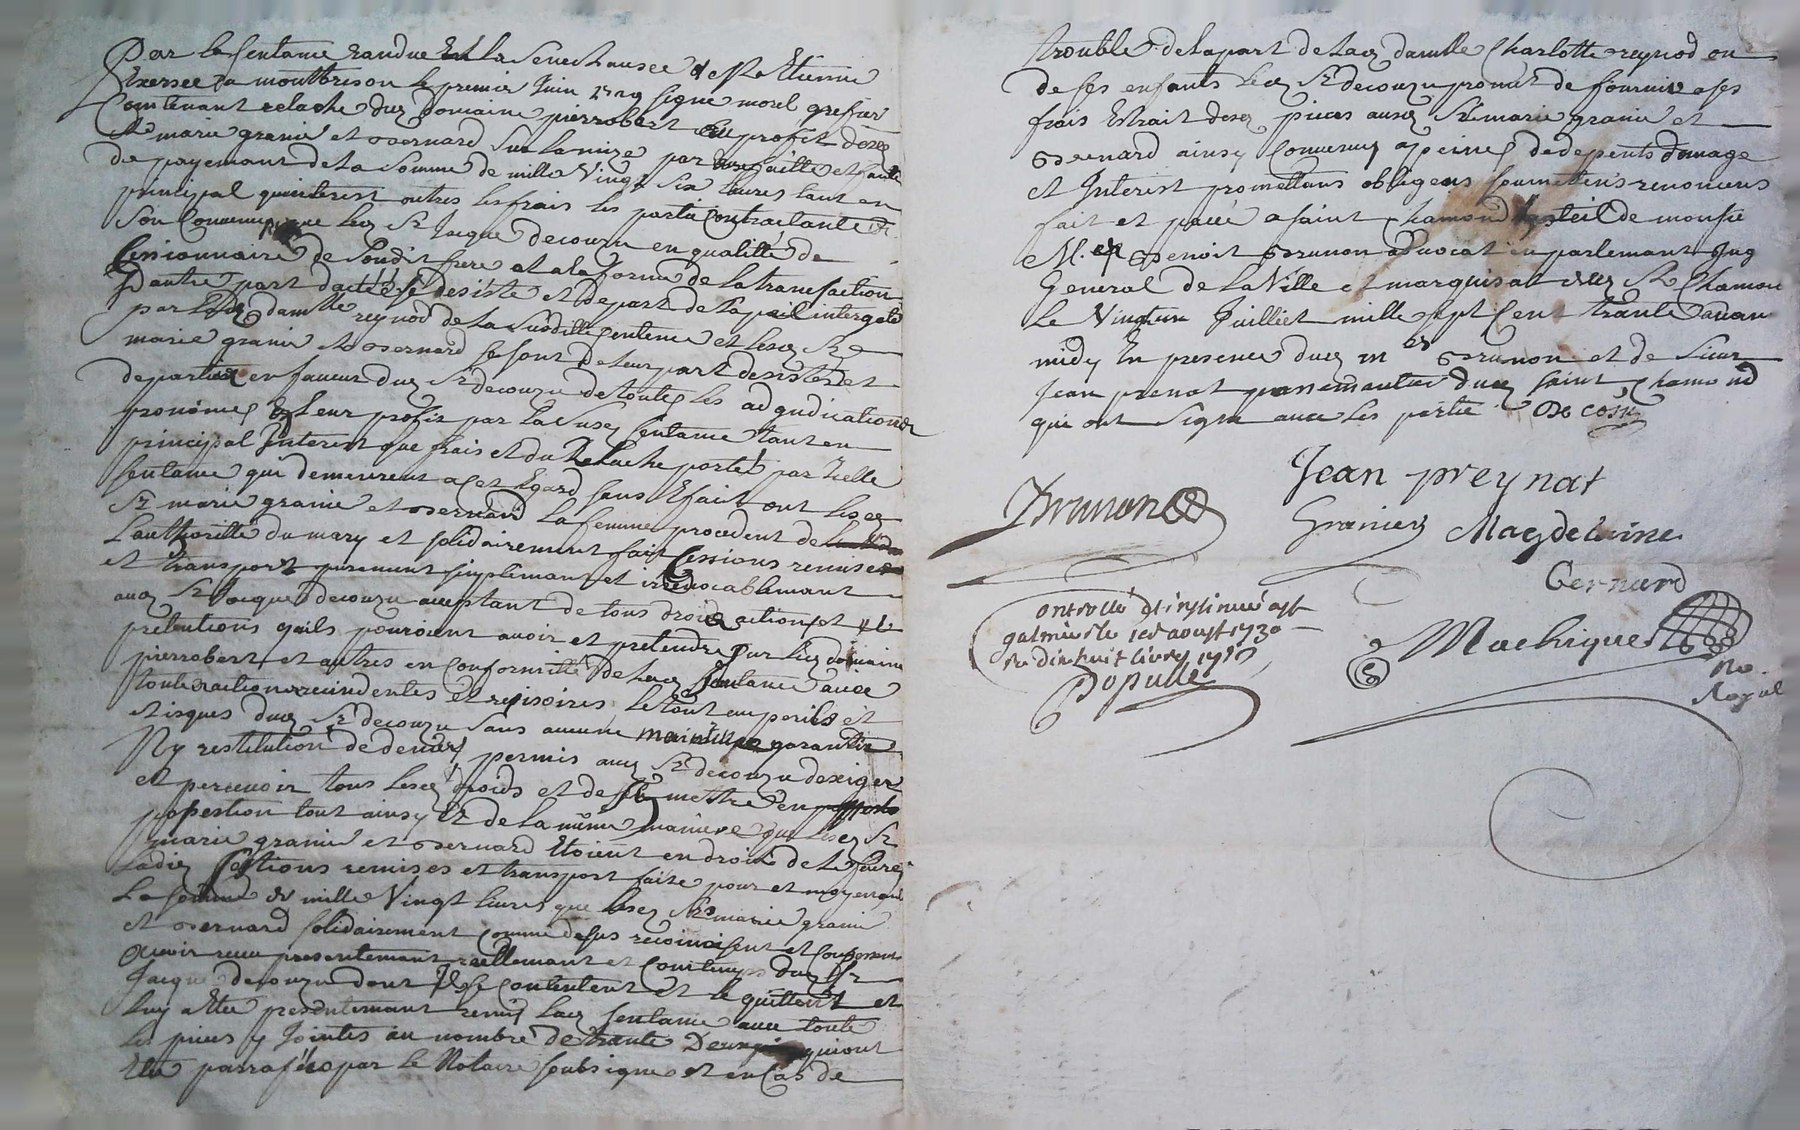 Par la sentance randue En la Senechaussee de St Etienne
Exersee a montbrison le premier Juin 1729 signe morel grefier
Contenant relache duq domaine pierrobert au profit desq
Sr marie granié et Bernard Sur la mize par faille et faute
de payemant de la Somme de mille Vingt Six livres tant en
principal quinterest outres les frais les partie Contractante
Son Convenu que leq Sr Jacque decouzu en qualitté de
Cessionnaire de Soudit frere et a la forme de la transaction
Dautre part dattée Se desiste et depart de
par lad damlle reynod de la Susditte Sentence et lesq Sr
marie granié et Bernard Se sont de leur part desistés et
departies en faveur duq Sr decouzu de toutes les adjudications
pronomés a Leur profit par la Susq Sentance tant en
principal Jnterest que frais et du Relache porté par Icelle
Sentance qui demeurent a cet Egard Sans Efait ont lesq
Sr marie granié et Bernard la femme procedent de
Lauthoritté du mary et solidairement fait Cessions remises
et transport purement simplemant et irrevocablemant
auq Sr Jacque decouzu aceptant de tous droits actions et
pretentions quils pouroient avoir et pretendre Sur leq domaine
pierrobert et autres en Conformitté de laq Sentance avec
toute actions recindentes et resisoires Le tout au perils et
risques duq Sr decouzu Sans aucune garantie
Ny restitution de deniers, permis auq Sr decouzu dexiger
et percevoir tous lesq droits et de se mettre en
possestion tout ainsy Et de la même maniere que lesq Sr
marie granié et Bernard Etoient en droit de le faire
Ladie Cestions remises et transport faite pour et moyenant
La Somme de mille Vingt livres que lesq Sr marie granié
et Bernard solidairement comme desus reconoisent et Confessent
avoir receu presentemant reellemant et Comtemps duq Sr
Jacque decouzu dont Ils se contentent et le quittent et
luy a Ette presentemant remis laq Sentance avec toute
les pieces y Jointes au nombre de trante Deux qui ont
Ette parrafées par le Notaire Soubsigne et en Cas de
trouble de la part de laq damlle Charlotte reynod ou
de ses enfants leq Sr decouzu promet de fournir a ses
frais Estrait desq pieces ausq Sr marie granié et
Bernard ainsy Convenus a peine de depents domage
et Interest promettans obligens soumettens renoncens
fait et passé a saint Chamond de monsie
M. Benoit Brunon advocat en parlemant Jug
General de la Ville et marquisat duq St Chamon
Le Vingt Juilliet mille sept Cent trante avan
midy En presence duq mes Brunon et de Sieur
Jean prenat duq Saint Chamond
qui ont Signe avec les partie
Brunon Jean preynat
Granier Magdelaine
Bernard
ontrollé et insinué a st
galmier le 1er aoust 1730
Re dix huit livres
Populle
Machique
No.
Royal